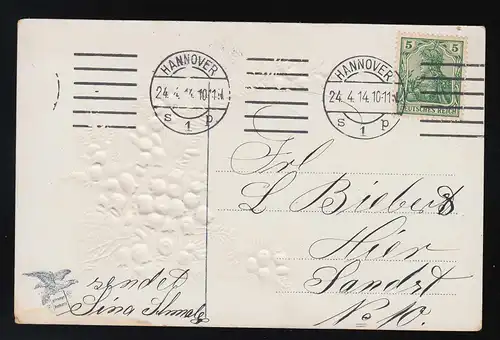 HANNOVER
24.4.14.10-11
S 1 p
HANNOVER
24.4.14.10-11
S 1 p
5 5
DEUTSCHES REICH
Frl
L Biebert
Hier
Sandst
No 10.
sendet
Sina